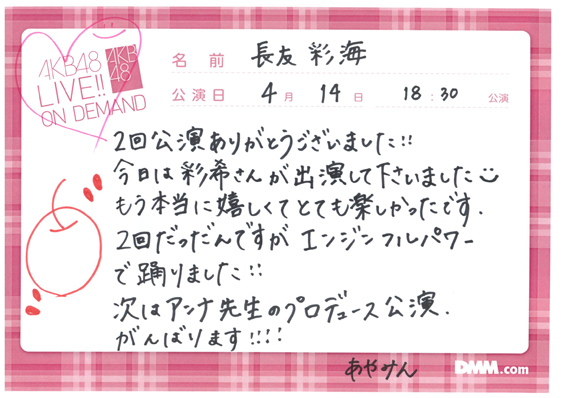 AKB48
LIVE!!
ON DEMAND
AKB
48
名前 長友 彩海
公演日 4月 14日 18:30 公演
2回公演ありがとうございました!!
今日は彩希さんが出演して下さいました
もう本当に嬉しくてとても楽しかったです.
2回だっだんですが エンジンフルパワー
で踊りました!!
次はアンナ先生のプロデュース公演.
がんばります!!!!
あやみん
DMM.com